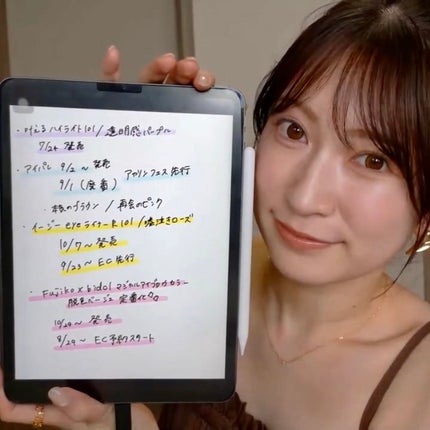 ・叶えるハイライト101/透明感パープル
7/24 発売
・アイパレ 9/2〜発売
9/1(大阪) アカリンフェス先行
秋のブラウン / 再会のピンク
・イージーeyeライナーR101/嘘泣きローズ
10/7〜発売
9/23〜EC先行
・Fujiko×bidol マジカルアイブロウカラー
脱色ベージュ 定番化
10/29〜発売
8/29〜EC予約スタート